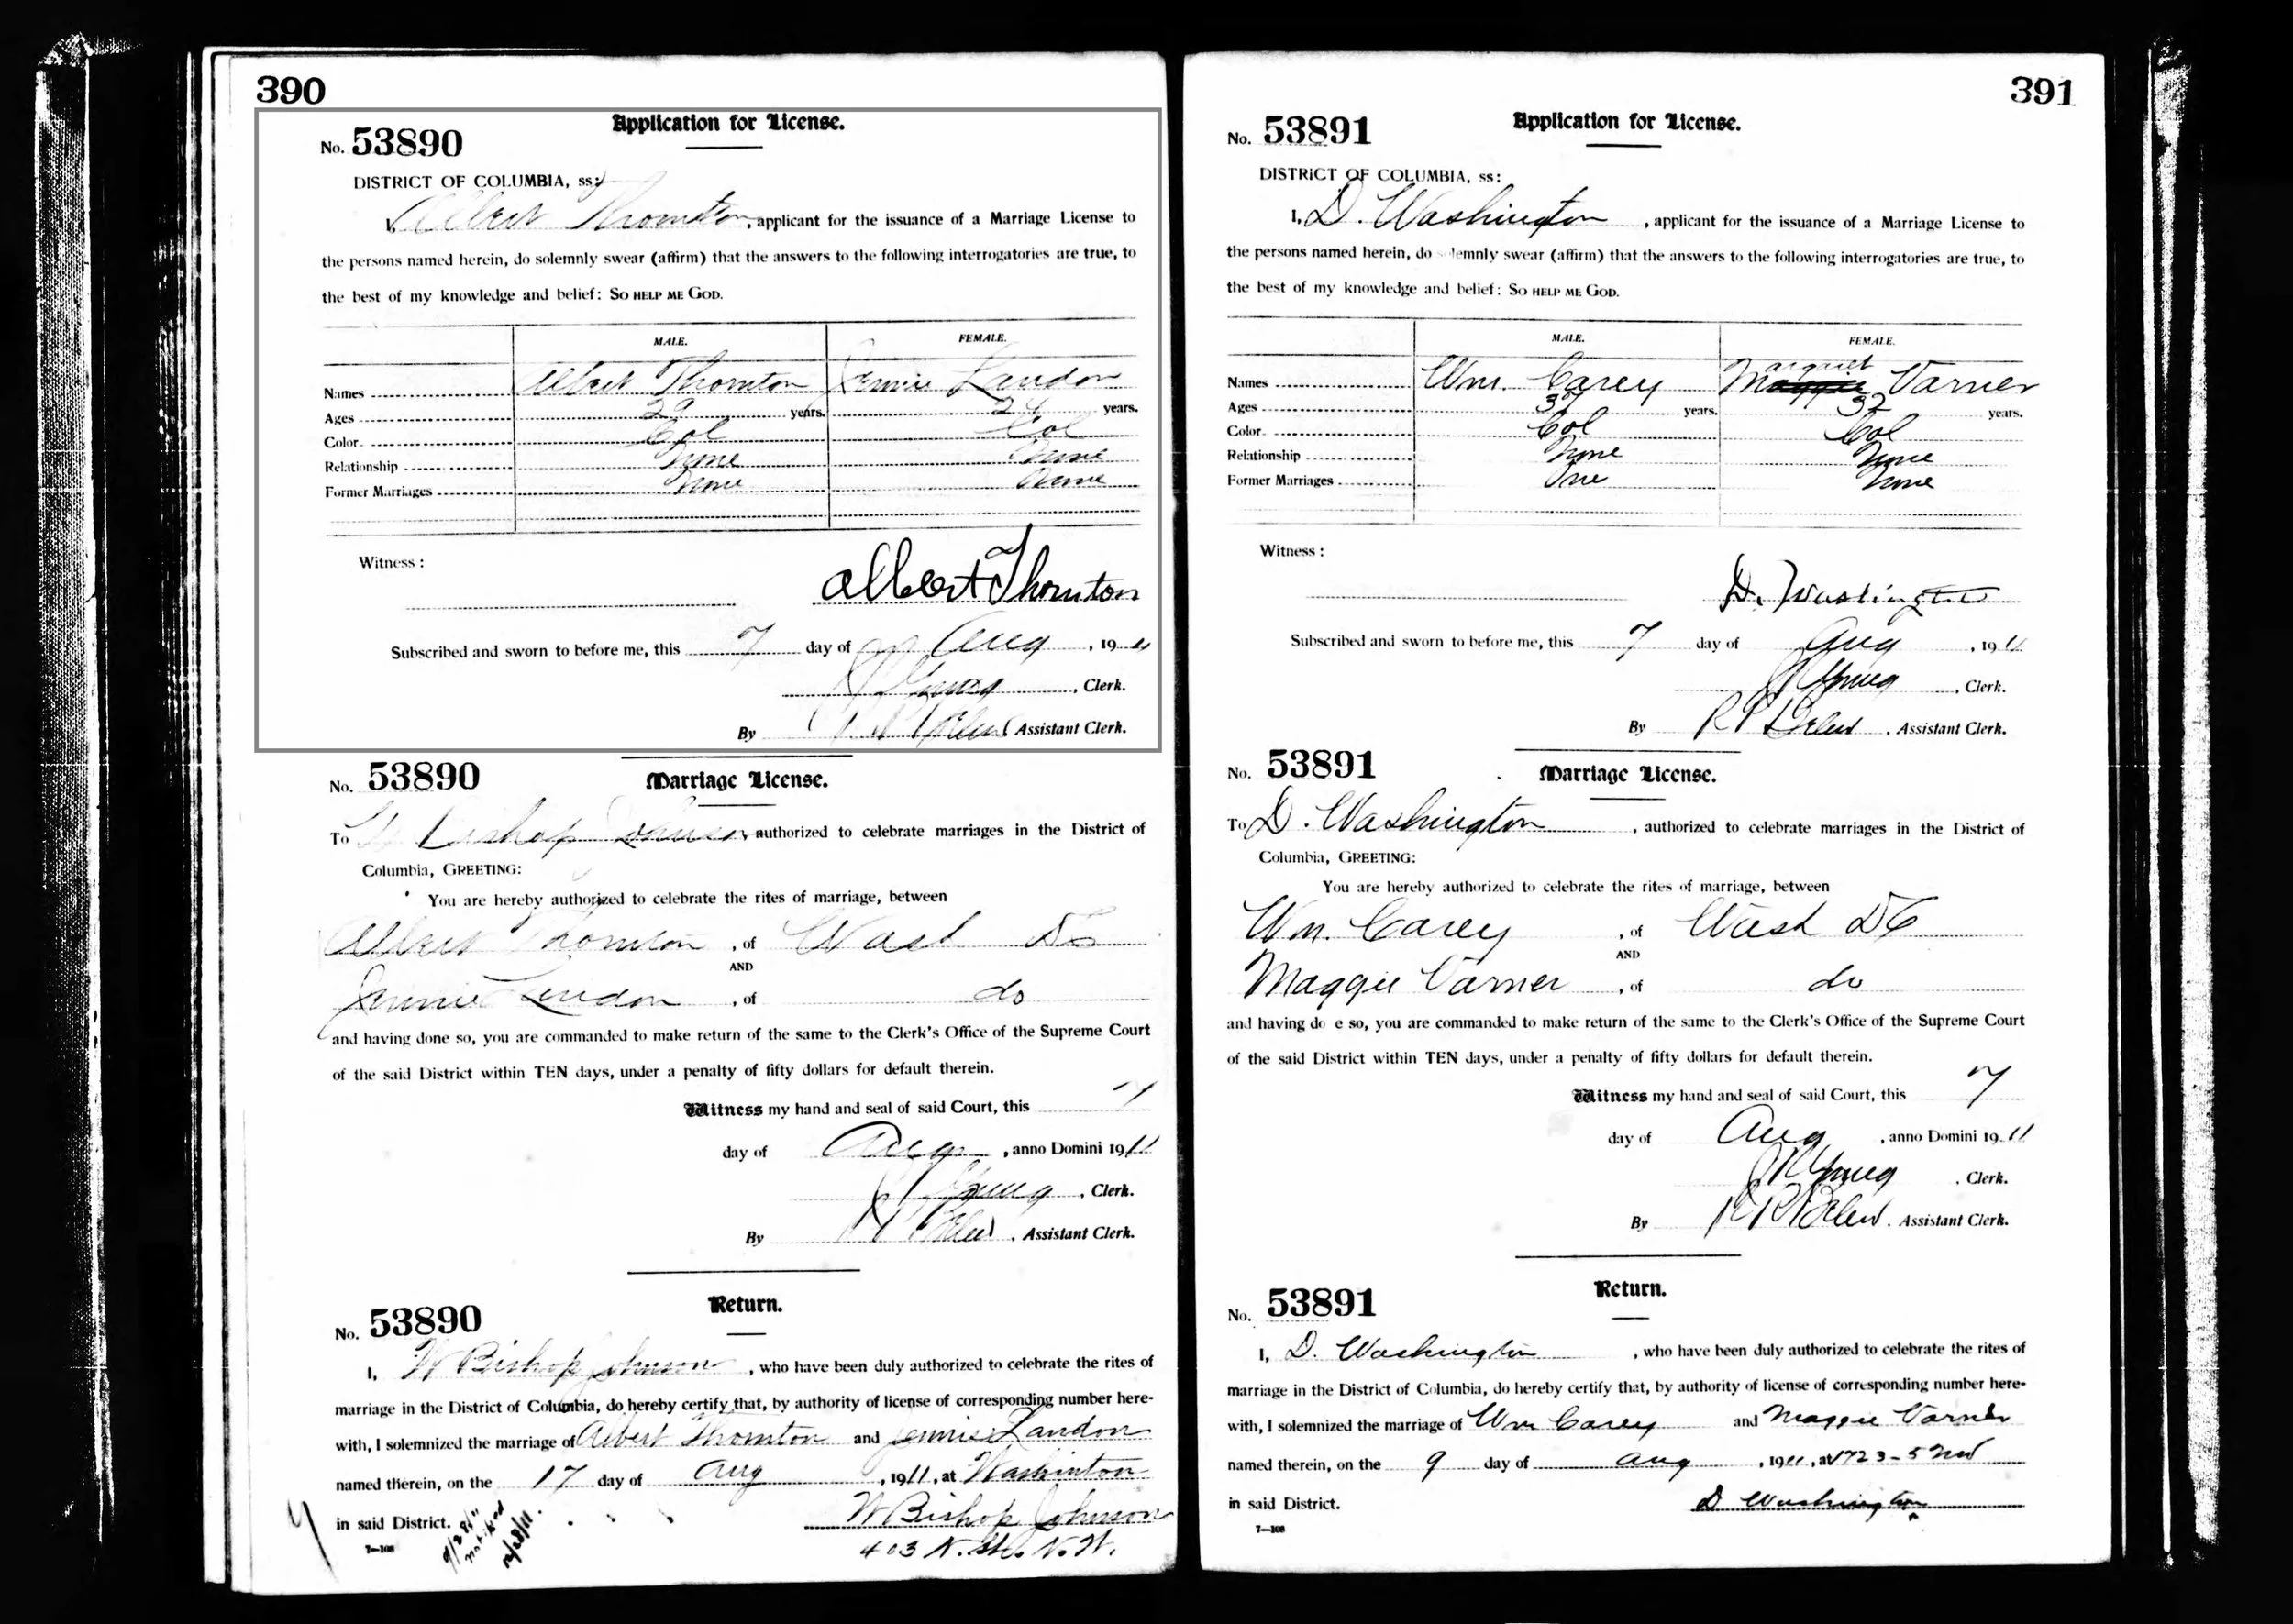 390
Application for License.
No. 53890
DISTRICT OF COLUMBIA, ss:
I, Albert Thornton, applicant for the issuance of a Marriage License to
the persons named herein, do solemnly swear (affirm) that the answers to the following interrogatories are true, to
the best of my knowledge and belief: SO HELP ME GOD.
MALE. FEMALE.
Names Albert Thornton Jennie Landon
Ages 29 years. years.
Color Col Col
Relationship None None
Former Marriages None None
Witness:
Albert Thornton
Subscribed and sworn to before me, this 7 day of Aug, 1911
J R Young, Clerk.
By Assistant Clerk.
No. 53890 Marriage License.
To W Bishop Johnson, authorized to celebrate marriages in the District of
Columbia, GREETING:
You are hereby authorized to celebrate the rites of marriage, between
Albert Thornton, of Wash DC
AND
Jennie Landon, of do
and having done so, you are commanded to make return of the same to the Clerk's Office of the Supreme Court
of the said District within TEN days, under a penalty of fifty dollars for default therein.
Witness my hand and seal of said Court, this 7
day of Aug, anno Domini 1911
J R Young, Clerk.
By Assistant Clerk.
Return.
No. 53890
I, W Bishop Johnson, who have been duly authorized to celebrate the rites of
marriage in the District of Columbia, do hereby certify that, by authority of license of corresponding number here-
with, I solemnized the marriage of Albert Thornton and Jennie Landon
named therein, on the 17 day of Aug, 1911, at Washinton
in said District. W Bishop Johnson
403 N. St. N. W.
7—108
notified
391
Application for License.
No. 53891
DISTRICT OF COLUMBIA, ss:
I, D. Washington, applicant for the issuance of a Marriage License to
the persons named herein, do lemnly swear (affirm) that the answers to the following interrogatories are true, to
the best of my knowledge and belief: SO HELP ME GOD.
MALE. FEMALE.
Names Wm. Carey Margaret Varner
Ages 37 years. 32 years.
Color Col Col
Relationship None None
Former Marriages One None
Witness:
D. Washington
Subscribed and sworn to before me, this 7 day of Aug, 1911
J R Young, Clerk.
By Assistant Clerk.
No. 53891 Marriage License.
To D. Washington, authorized to celebrate marriages in the District of
Columbia, GREETING:
You are hereby authorized to celebrate the rites of marriage, between
Wm. Carey, of Wash DC
AND
Maggie Varner, of do
and having do e so, you are commanded to make return of the same to the Clerk's Office of the Supreme Court
of the said District within TEN days, under a penalty of fifty dollars for default therein.
Witness my hand and seal of said Court, this 7
day of Aug, anno Domini 1911
J R Young, Clerk.
By Assistant Clerk.
Return.
No. 53891
I, D. Washington, who have been duly authorized to celebrate the rites of
marriage in the District of Columbia, do hereby certify that, by authority of license of corresponding number here-
with, I solemnized the marriage of Wm Carey and Maggie Varner
named therein, on the 9 day of Aug, 1911, at 1723-5 NW
in said District. D Washington
7—108